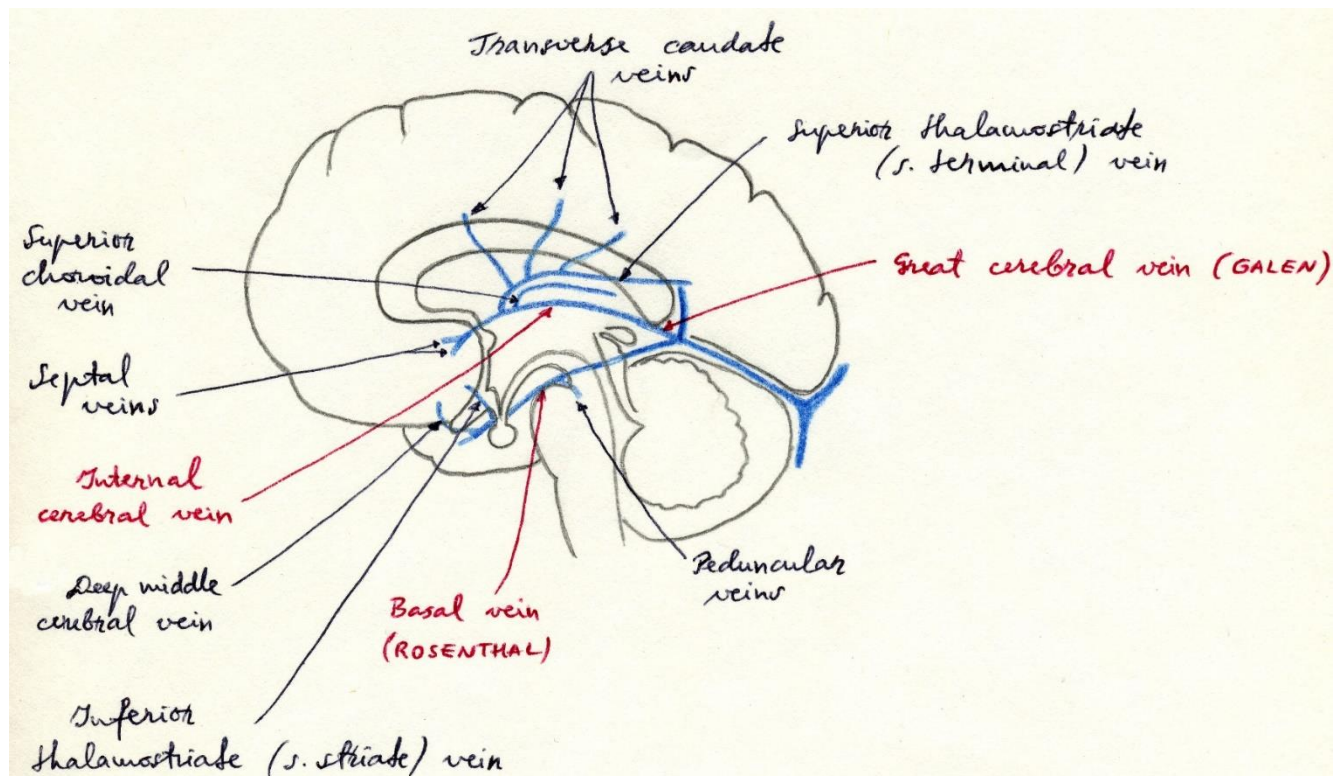 Transverse caudate
veins
Superior thalamostriate
(s. terminal) vein
Superior
choroidal
vein
Great cerebral vein (GALEN)
Septal
veins
Internal
cerebral vein
Deep middle
cerebral vein
Basal vein
(ROSENTHAL)
Peduncular
veins
Inferior
thalamostriate (s. striate) vein